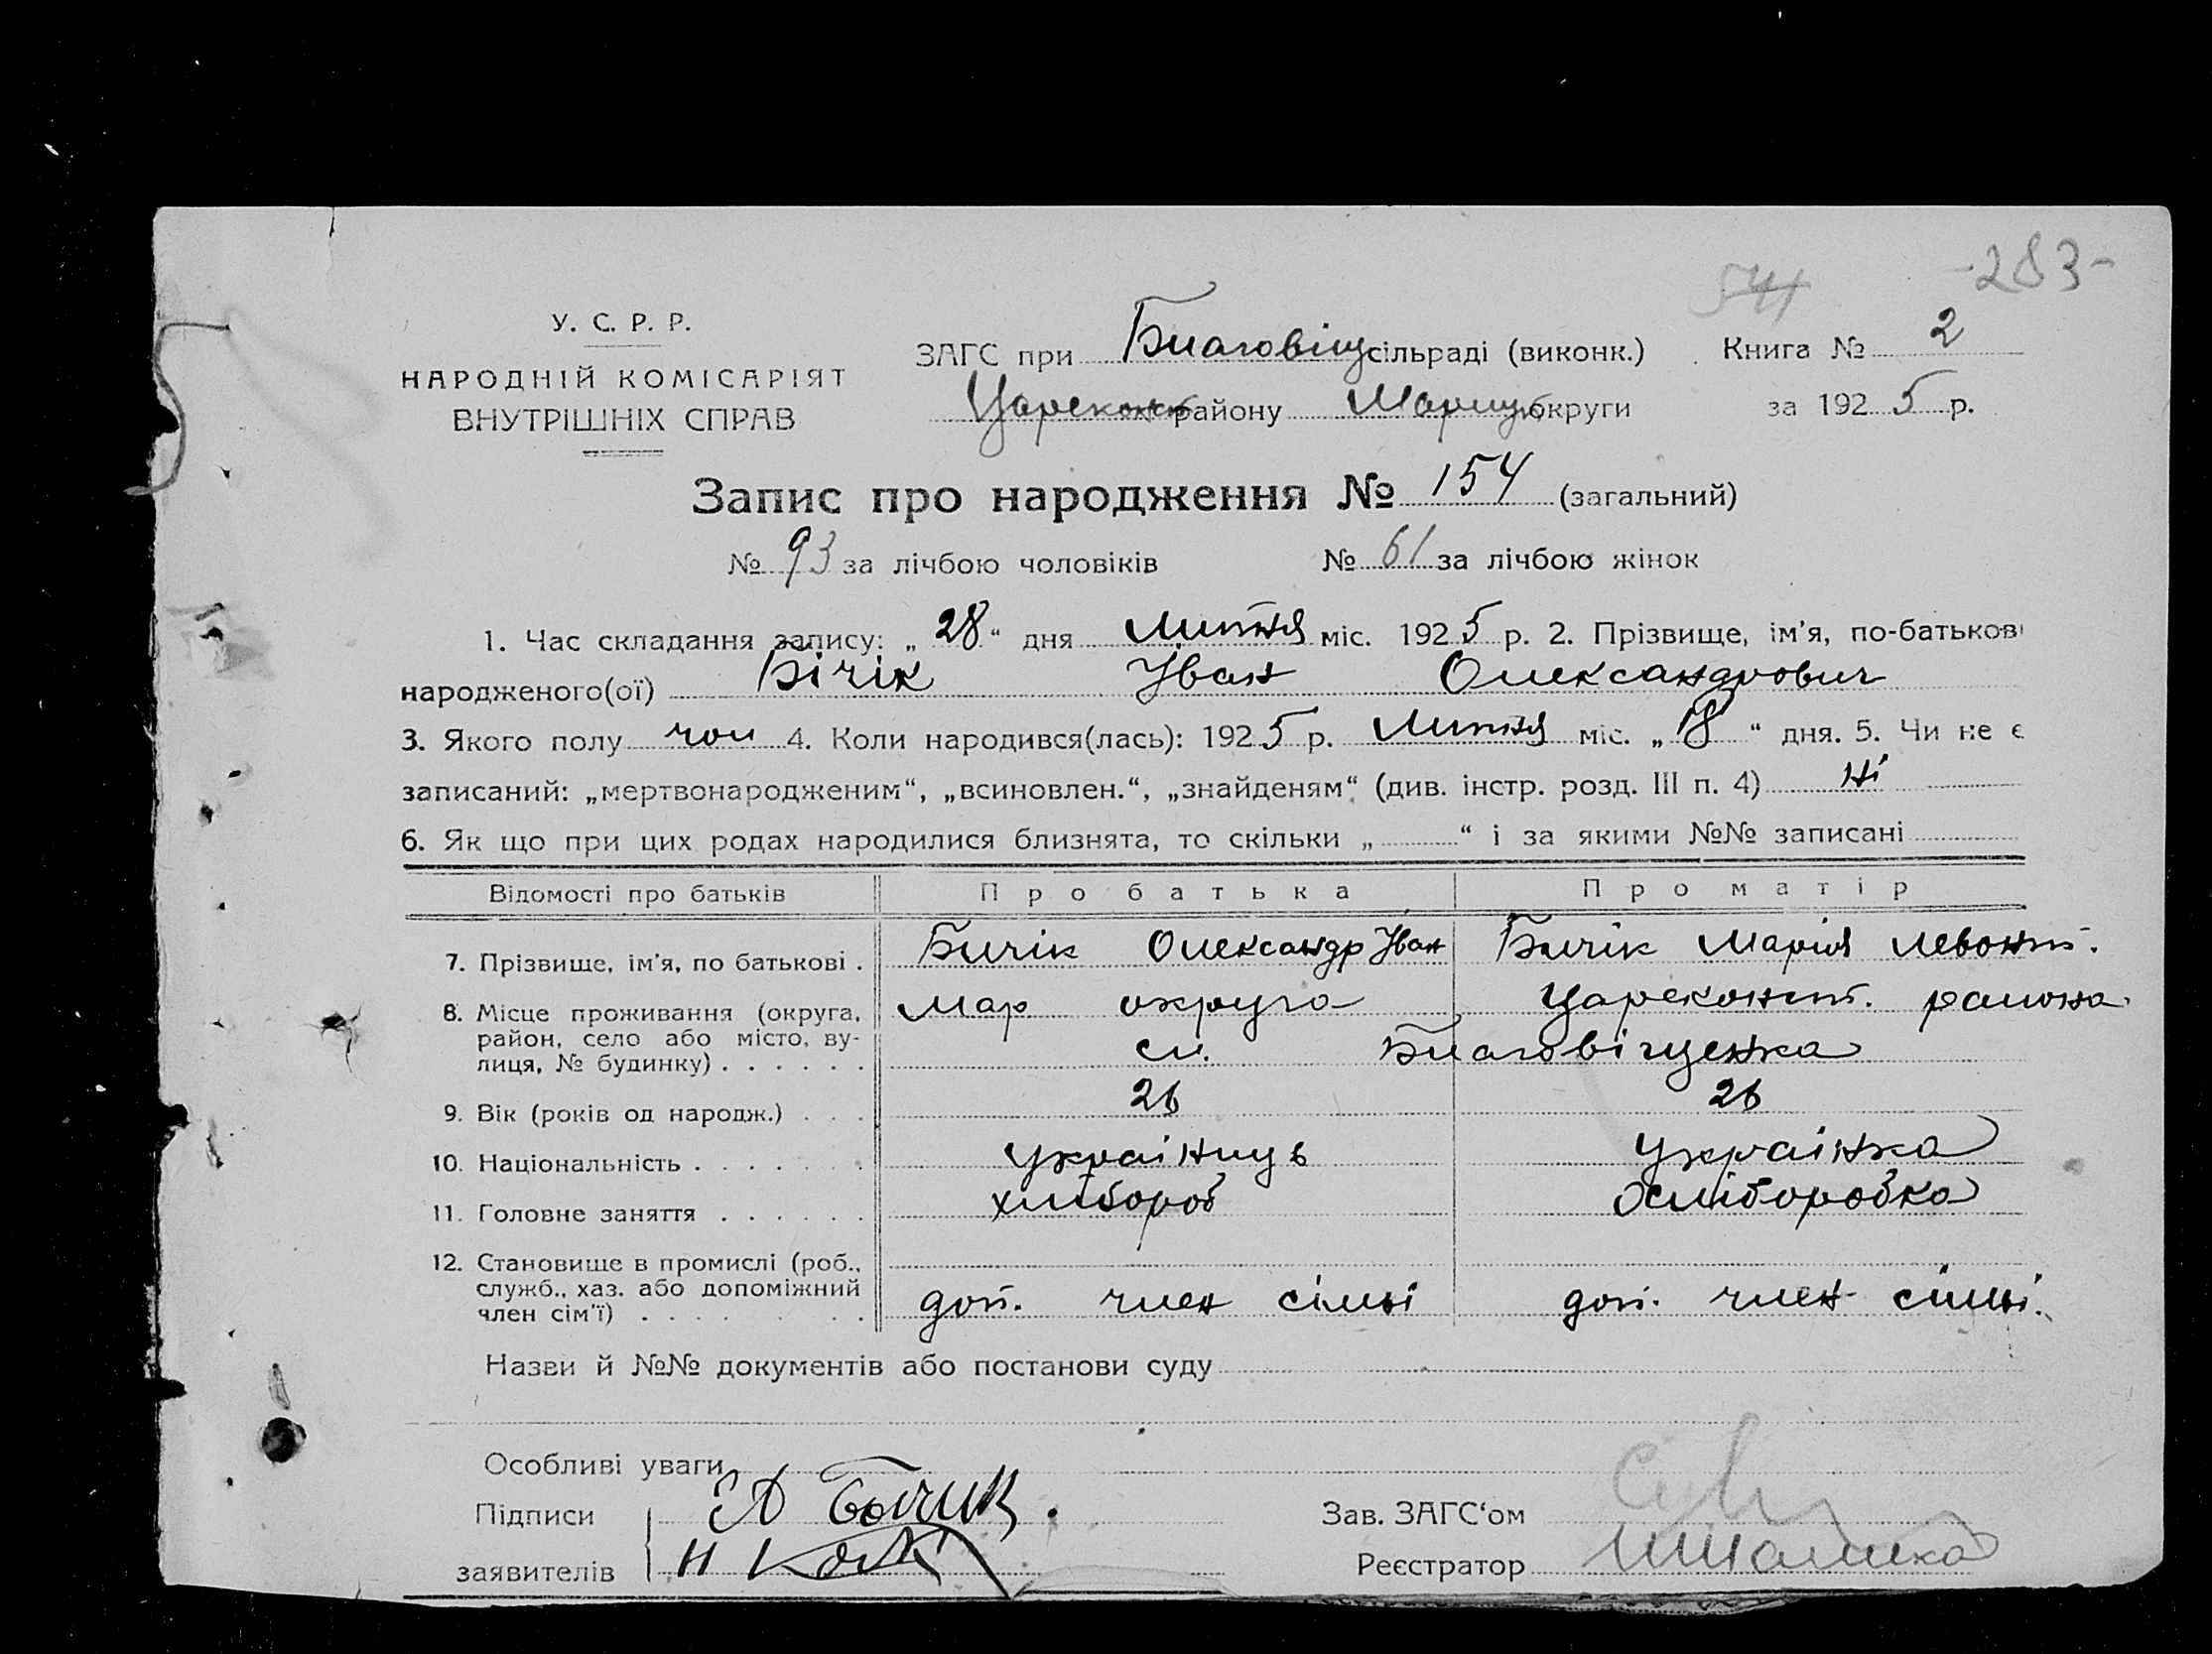 -283-
541
У. С. Р. Р.
НАРОДНІЙ КОМІСАРІЯТ
ВНУТРІШНІХ СПРАВ
ЗАГС при Благовіщ сільраді (виконк.) Книга № 2
Царекон району Маріуп округи за 1925 р.
Запис про народження № 154 (загальний)
№ 93 за лічбою чоловіків № 61 за лічбою жінок
1. Час складання запису: „28“ дня Липня міс. 1925 р. 2. Прізвище, ім'я, по-батькові
народженого(ої) Бічік Іван Олександрович
3. Якого полу чол 4. Коли народився(лась): 1925 р. Липня міс. „18“ дня. 5. Чи не є
записаний: „мертвонародженим“, „всиновлен.“, „знайденям“ (див. інстр. розд. III п. 4) ні
6. Як що при цих родах народилися близнята, то скільки „ “ і за якими №№ записані
Відомості про батьків Про батька Про матір
7. Прізвище, ім'я, по батькові . Бичік Олександр Іван Бичік Марія Левонт.
8. Місце проживання (округа, район, село або місто, вулиця, № будинку) . . . . . . Мар округа Цареконст. района
сл. Благовіщенка
9. Вік (років од народж.) . . . 26 26
10. Національність . . . . . . . українць українка
11. Головне заняття . . . . . . хлібороб хліборобка
12. Становище в промислі (роб., служб., хаз. або допоміжний член сім'ї) . . . . . . . доп. член сімьі доп. член сімьі.
Назви й №№ документів або постанови суду
Особливі уваги
Підписи А Бичик.
заявителів Н
Зав. ЗАГС‘ом
Реєстратор